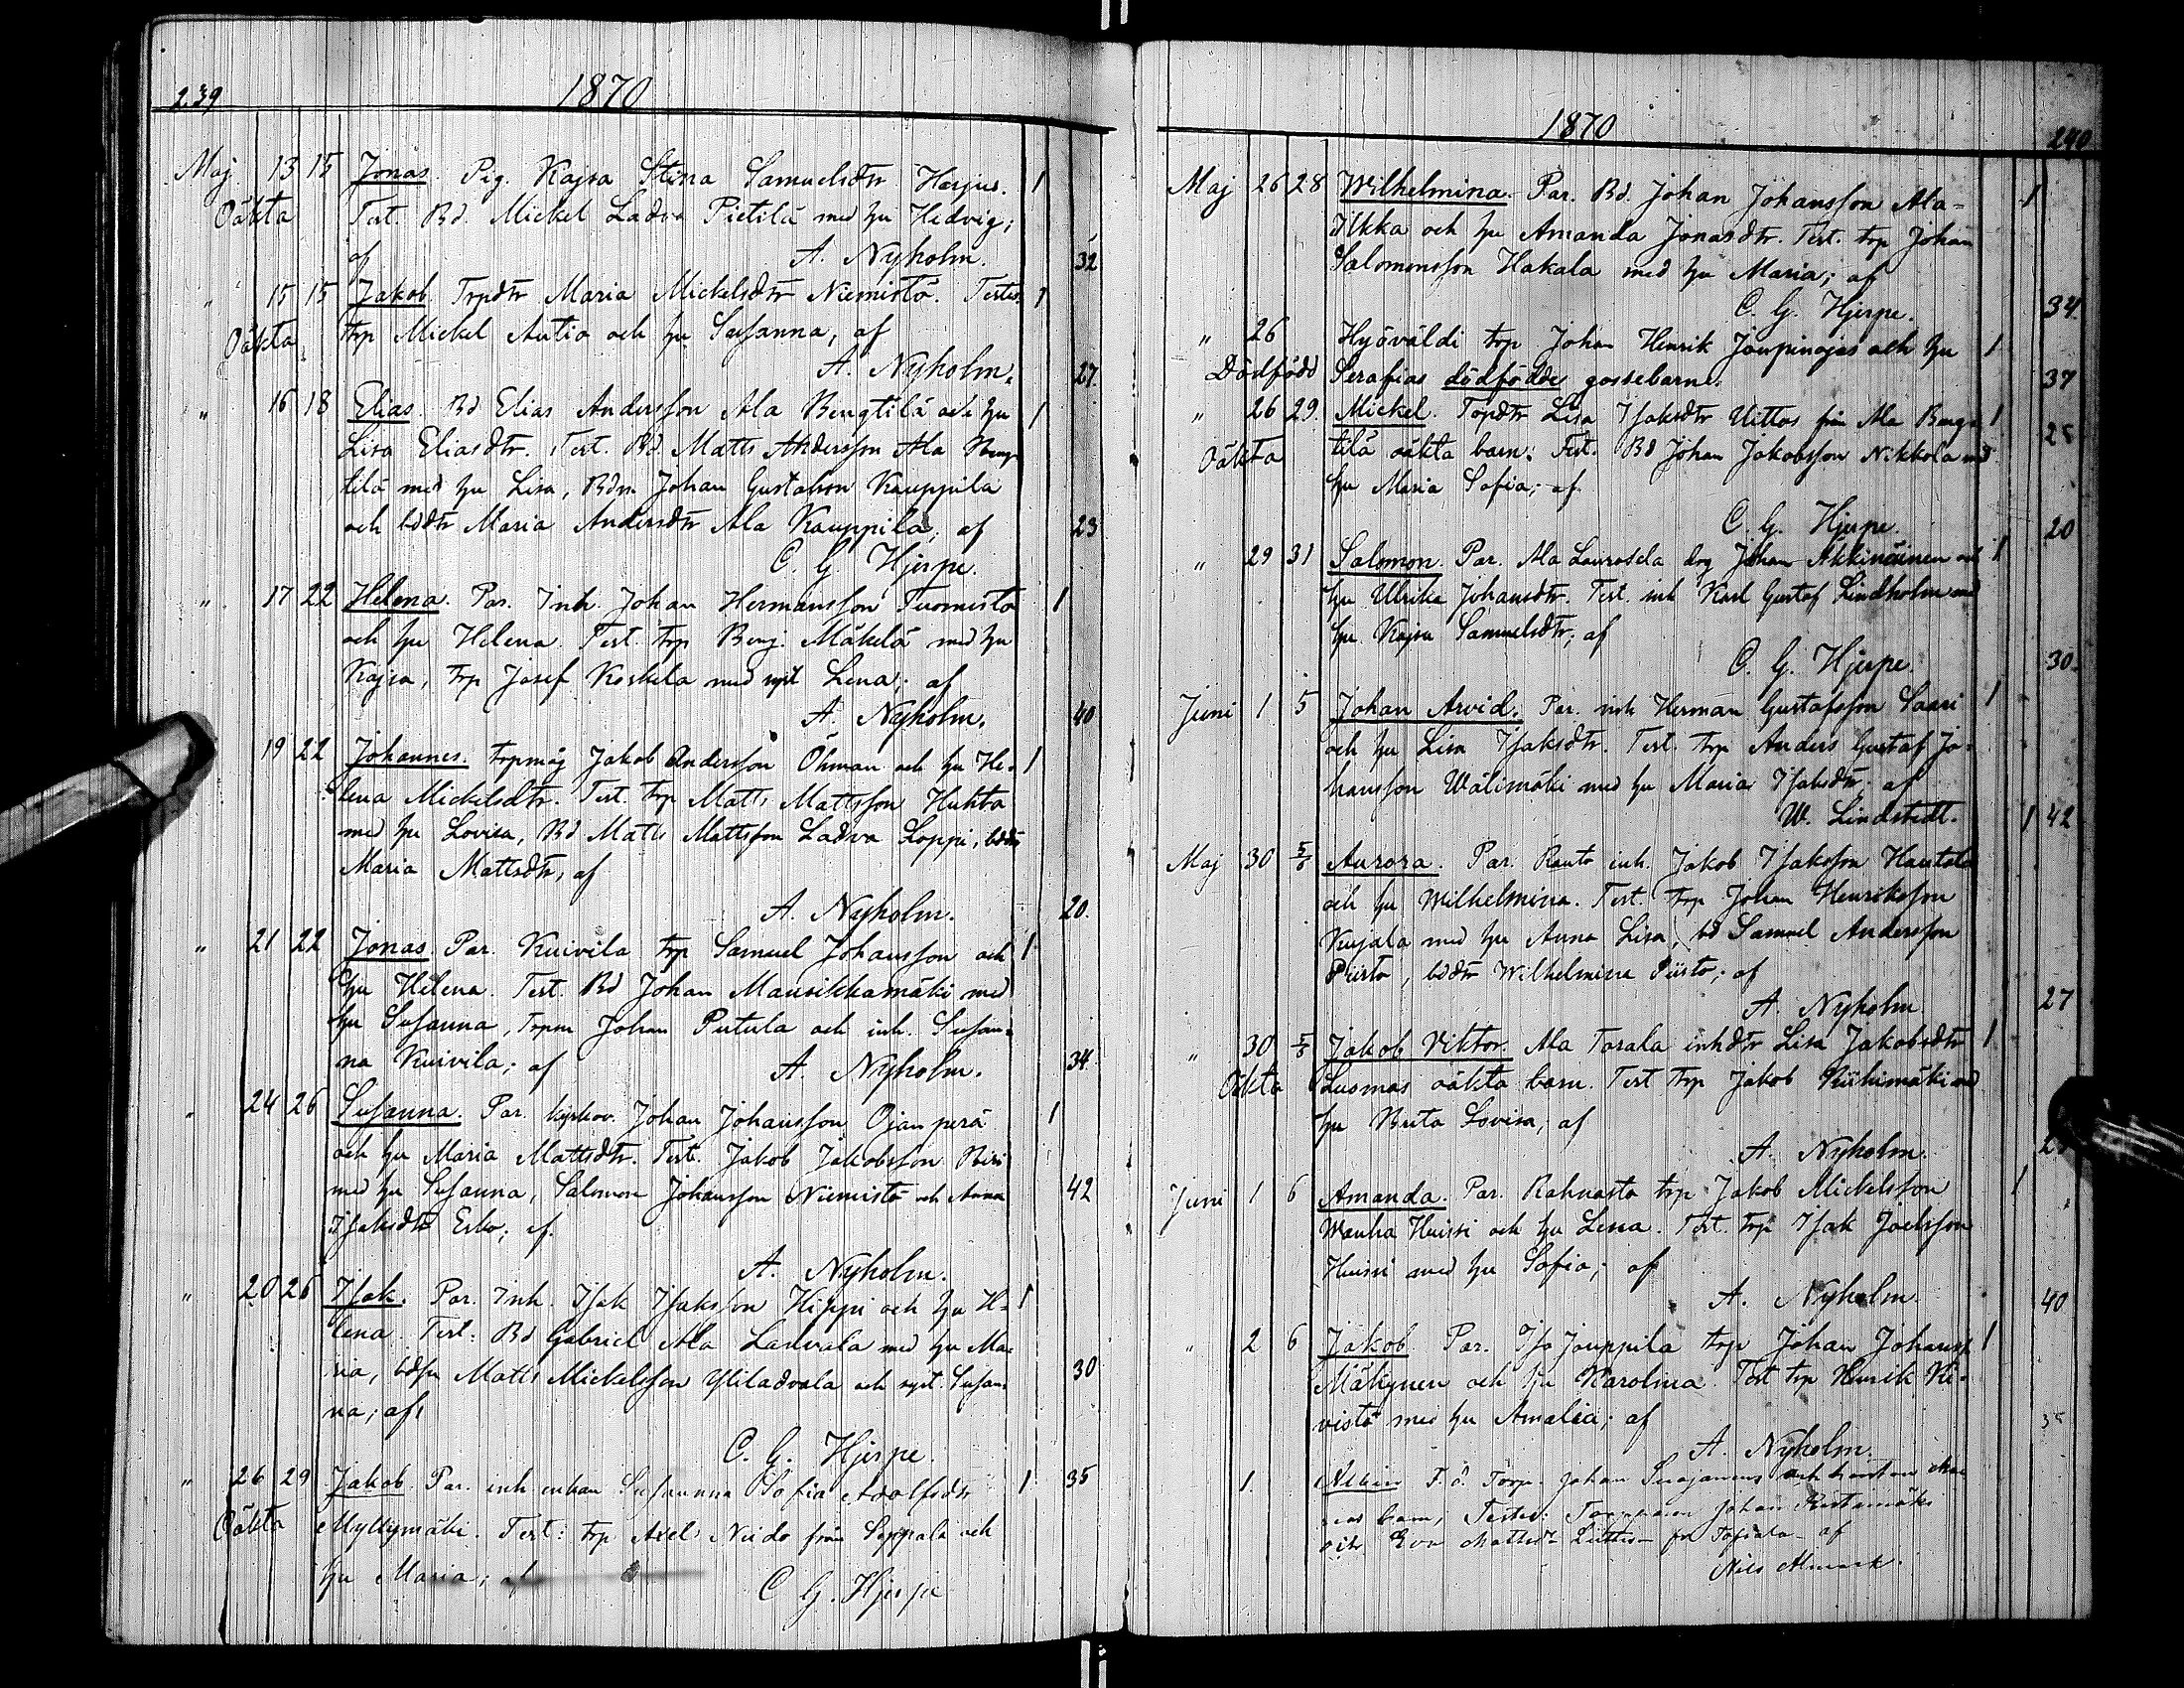 239 1870
Maj 13 15 Jonas. Pig. Kajsa Stina Samuelsdtr Harjus. 1
Oäkta Test. Bd. Mickel Ladva Pietilä med hu Hedvig;
af A. Nyholm. 32
" 15 15 Jakob. Trpdtr Maria Mickelsdtr Niemistö. Testes 1
Oäkta trp Mickel Autio och hu Susanna, af
A. Nyholm. 27.
" 16 18 Elias. Bd Elias Andersson Ala Bengtilä och hu 1
Lisa Eliasdtr. Test. Bd. Matts Andersson Ala Beng-
tilä med hu Lisa, Bdsn. Johan Gustafson Kauppila
och bddtr Maria Andersdtr Ala Kauppila; af 23
C. G. Hjerpe.
" 17 22 Helena. Par. Inh. Johan Hermansson Tuomisto 1
och hu Helena. Test. trp Benj. Mäkelä med hu
Kajsa, trp Josef Koskela med syst Lena; af
A. Nyholm. 40
19 22 Johannes. trpmåg Jakob Andersson Öhman och hu He- 1
lena Mickelsdtr. Test. trp Matts Mattsson Huhta
med hu Lovisa, Bd Matts Mattsson Ladva Loppi, bddtr
Maria Mattsdtr, af
A. Nyholm. 20.
" 21 22 Jonas. Par. Kuivila trp Samuel Johansson och 1
hu Helena. Test. Bd Johan Mansikkamäki med
hu Susanna, Johan Putula och inh. Susan-
na Kuivila; af A Nyholm. 34.
" 24 26 Susanna. Par. kyrkov. Johan Johansson Ojanperä 1
och hu Maria Mattsdtr. Test. Jakob Jakobsson
med hu Susanna, Salomon Johansson Niemistö och Anna 42
Isaksdtr Esko; af.
A. Nyholm.
" 20 26 Isak. Par. Inh. Isak Isaksson Hippi och hu He- 1
lena. Test: Bd Gabriel Ala Ladvala med hu Ma-
ria, Matts Mickelsson Yliladvala och syst. Susan- 30
na; af
C. G. Hjerpe.
" 26 29 Jakob. Par. inh enkan Susanna Sofia Adolfsdtr 1 35
Oäkta Myllymäki. Test: trp Axel från Seppala och
hu Maria; af C G. Hjerpe
1870 240
Maj 26 28 Wilhelmina. Par. Bd. Johan Johansson Ala- 1
Ilkka och hu Amanda Jonasdtr. Test. trp Johan
Salomonsson Hakala med hu Maria; af
C. G. Hjerpe. 34.
" 26 Hyöväldi trp Johan Henrik Joupinojas och hu 1
Dödfödd Serafias dödfödde gossebarn. 37
" 26 29. Mickel. Trpdtr Lisa Isaksdtr Uittos från Ala Beng- 1
Oäkta tilä oäkta barn: Test. Bd Johan Jakobsson Nikkola med
hu Maria Sofia; af.
C. G. Hjerpe. 20
" 29 31 Salomon. Par. Ala Laurosela drg Johan och 1
hu Ulrika Johansdtr. Test. inh Karl Gustaf Lindholm med
hu. Kajsa Samuelsdtr; af
C. G. Hjerpe. 30.
Juni 1 5 Johan Arvid. Par. inh Herman Gustafsson Saari 1
och hu Lisa Isaksdtr. Test. trp Anders Gustaf Jo-
hansson Wälimäki med hu Maria Isaksdtr. af
W. Lindstedt. 1 42
Maj 30 5/6 Aurora. Par. Ranto inh. Jakob Isaksson Hautala
och hu Wilhelmina. Test. trp Johan Henriksson
Kujala med hu Anna Lisa, bd Samuel Andersson
Piisto, bddtr Wilhelmina Piisto; af
A. Nyholm 27
" 30 5/6 Jakob Viktor. Ala Tarala inhdtr Lisa Jakobsdtr 1
Oäkta Lusmas oäkta barn. Test trp Jakob Riihimäki med
hu Brita Lovisa; af
A. Nyholm.
Juni 1 6 Amanda. Par. Rahnasto trp Jakob Mickelsson 1
Wanha Huissi och hu Lena. Test. trp Isak Joelsson
Huissi med hu Sofia; af
A. Nyholm. 40
" 2 6 Jakob. Par. Iso Jouppila trp Johan Johanss 1
Mäkynen och hu Karolina. Test trp Henrik Ki-
vistö med hu Amalia; af
A. Nyholm.
1. Albin F. ö. Torp. Johan och hustru Ma-
rias barn, Testes: Johan
och Eva Mattsdtr af
Nils Almark.